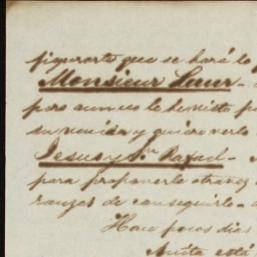 figurarte que se hará lo
Monsieur Laur-
pero aun no le he visto p
su reunion y quiero verlo
Jesus y Rafael-
para proponerle otra vez
ranzas de conseguirlo-
Hace pocos dias
Anita está